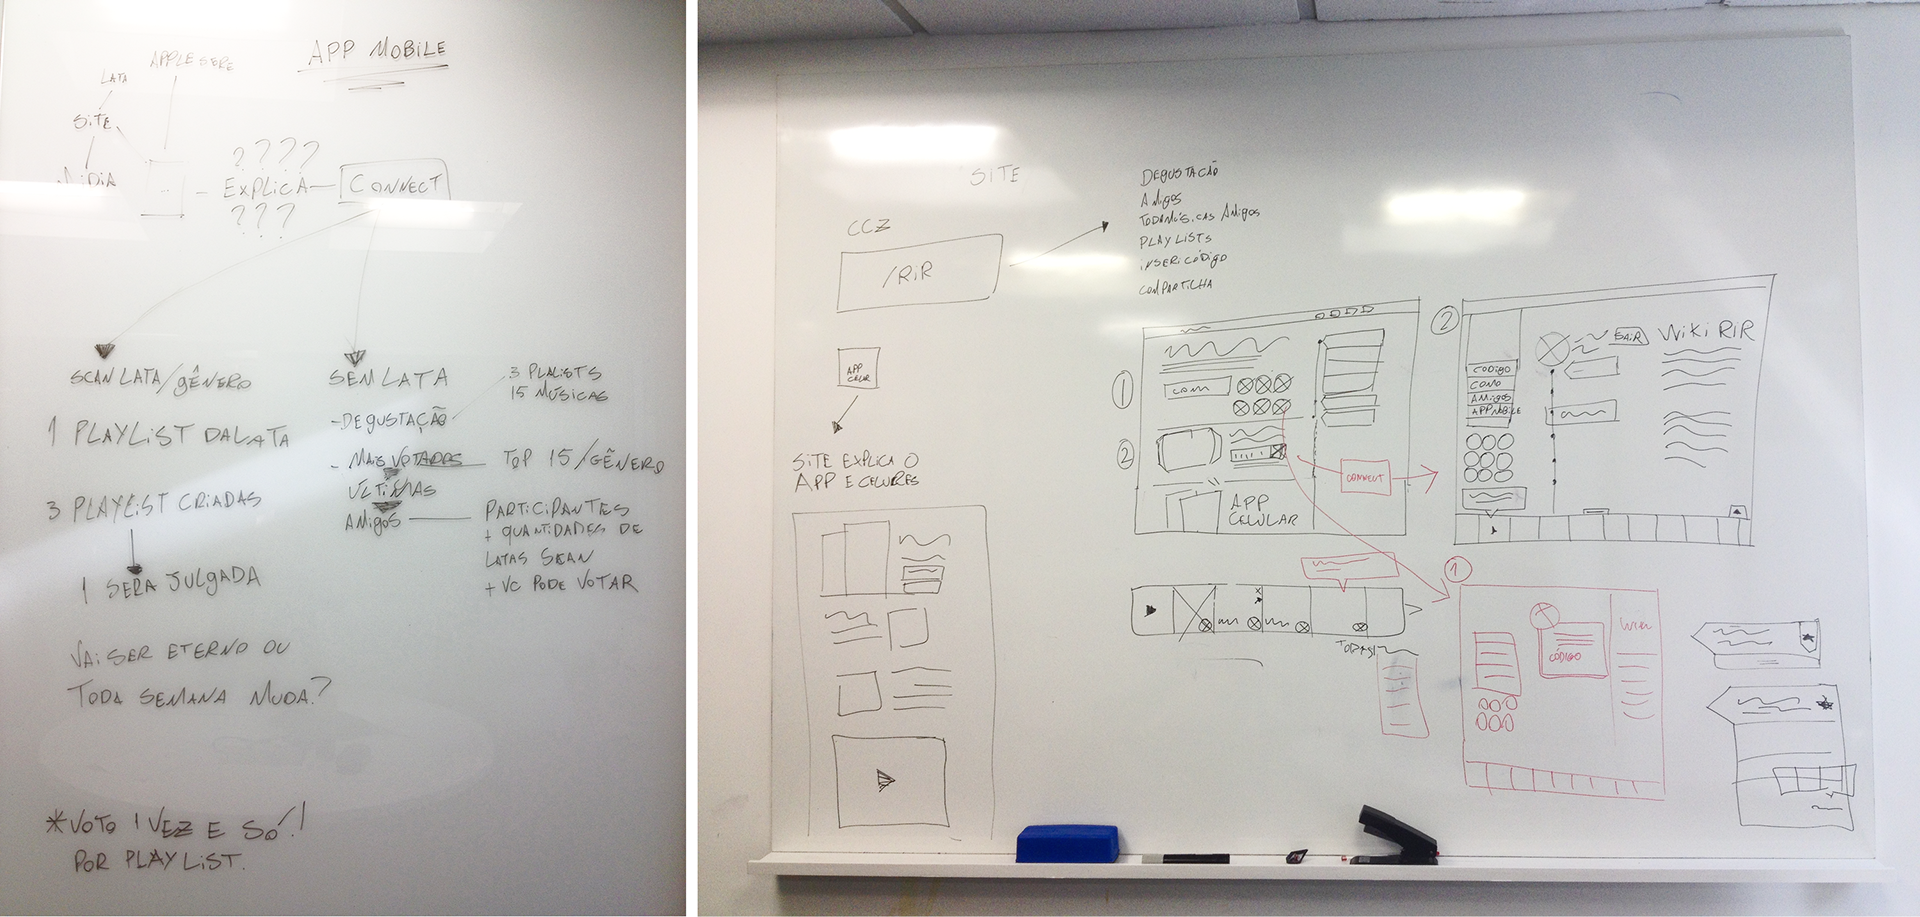 APP MOBILE
LATA
SITE
EXPLICA
????
???
CONNECT
SCAN LATA/GÊNERO
1 PLAYLIST DA LATA
3 PLAYLIST CRIADAS
1 SERA JULGADA
VAI SER ETERNO OU
TODA SEMANA MUDA?
*VOTO 1 VEZ E SÓ!
POR PLAYLIST.
SEM LATA
3 PLALISTS
15 MÚSICAS
-DEGUSTAÇÃO
- MAIS VOTADAS
TOP 15/GÊNERO
ULTIMAS
AMIGOS
PARTICIPANTES
+ QUANTIDADES DE
LATAS SCAN
+ VC PODE VOTAR
SITE
CCZ
/RIR
DEGUSTAÇÃO
AMIGOS
PLAYLISTS
INSERI CÓDIGO
COMPARTILHA
APP
CELULAR
SITE EXPLICA O
1
2
APP
CELULAR
CONNECT
2
SAIR
WIKI RIR
CODIGO
COMO
AMIGOS
APP MOBILE
1
CÓDIGO